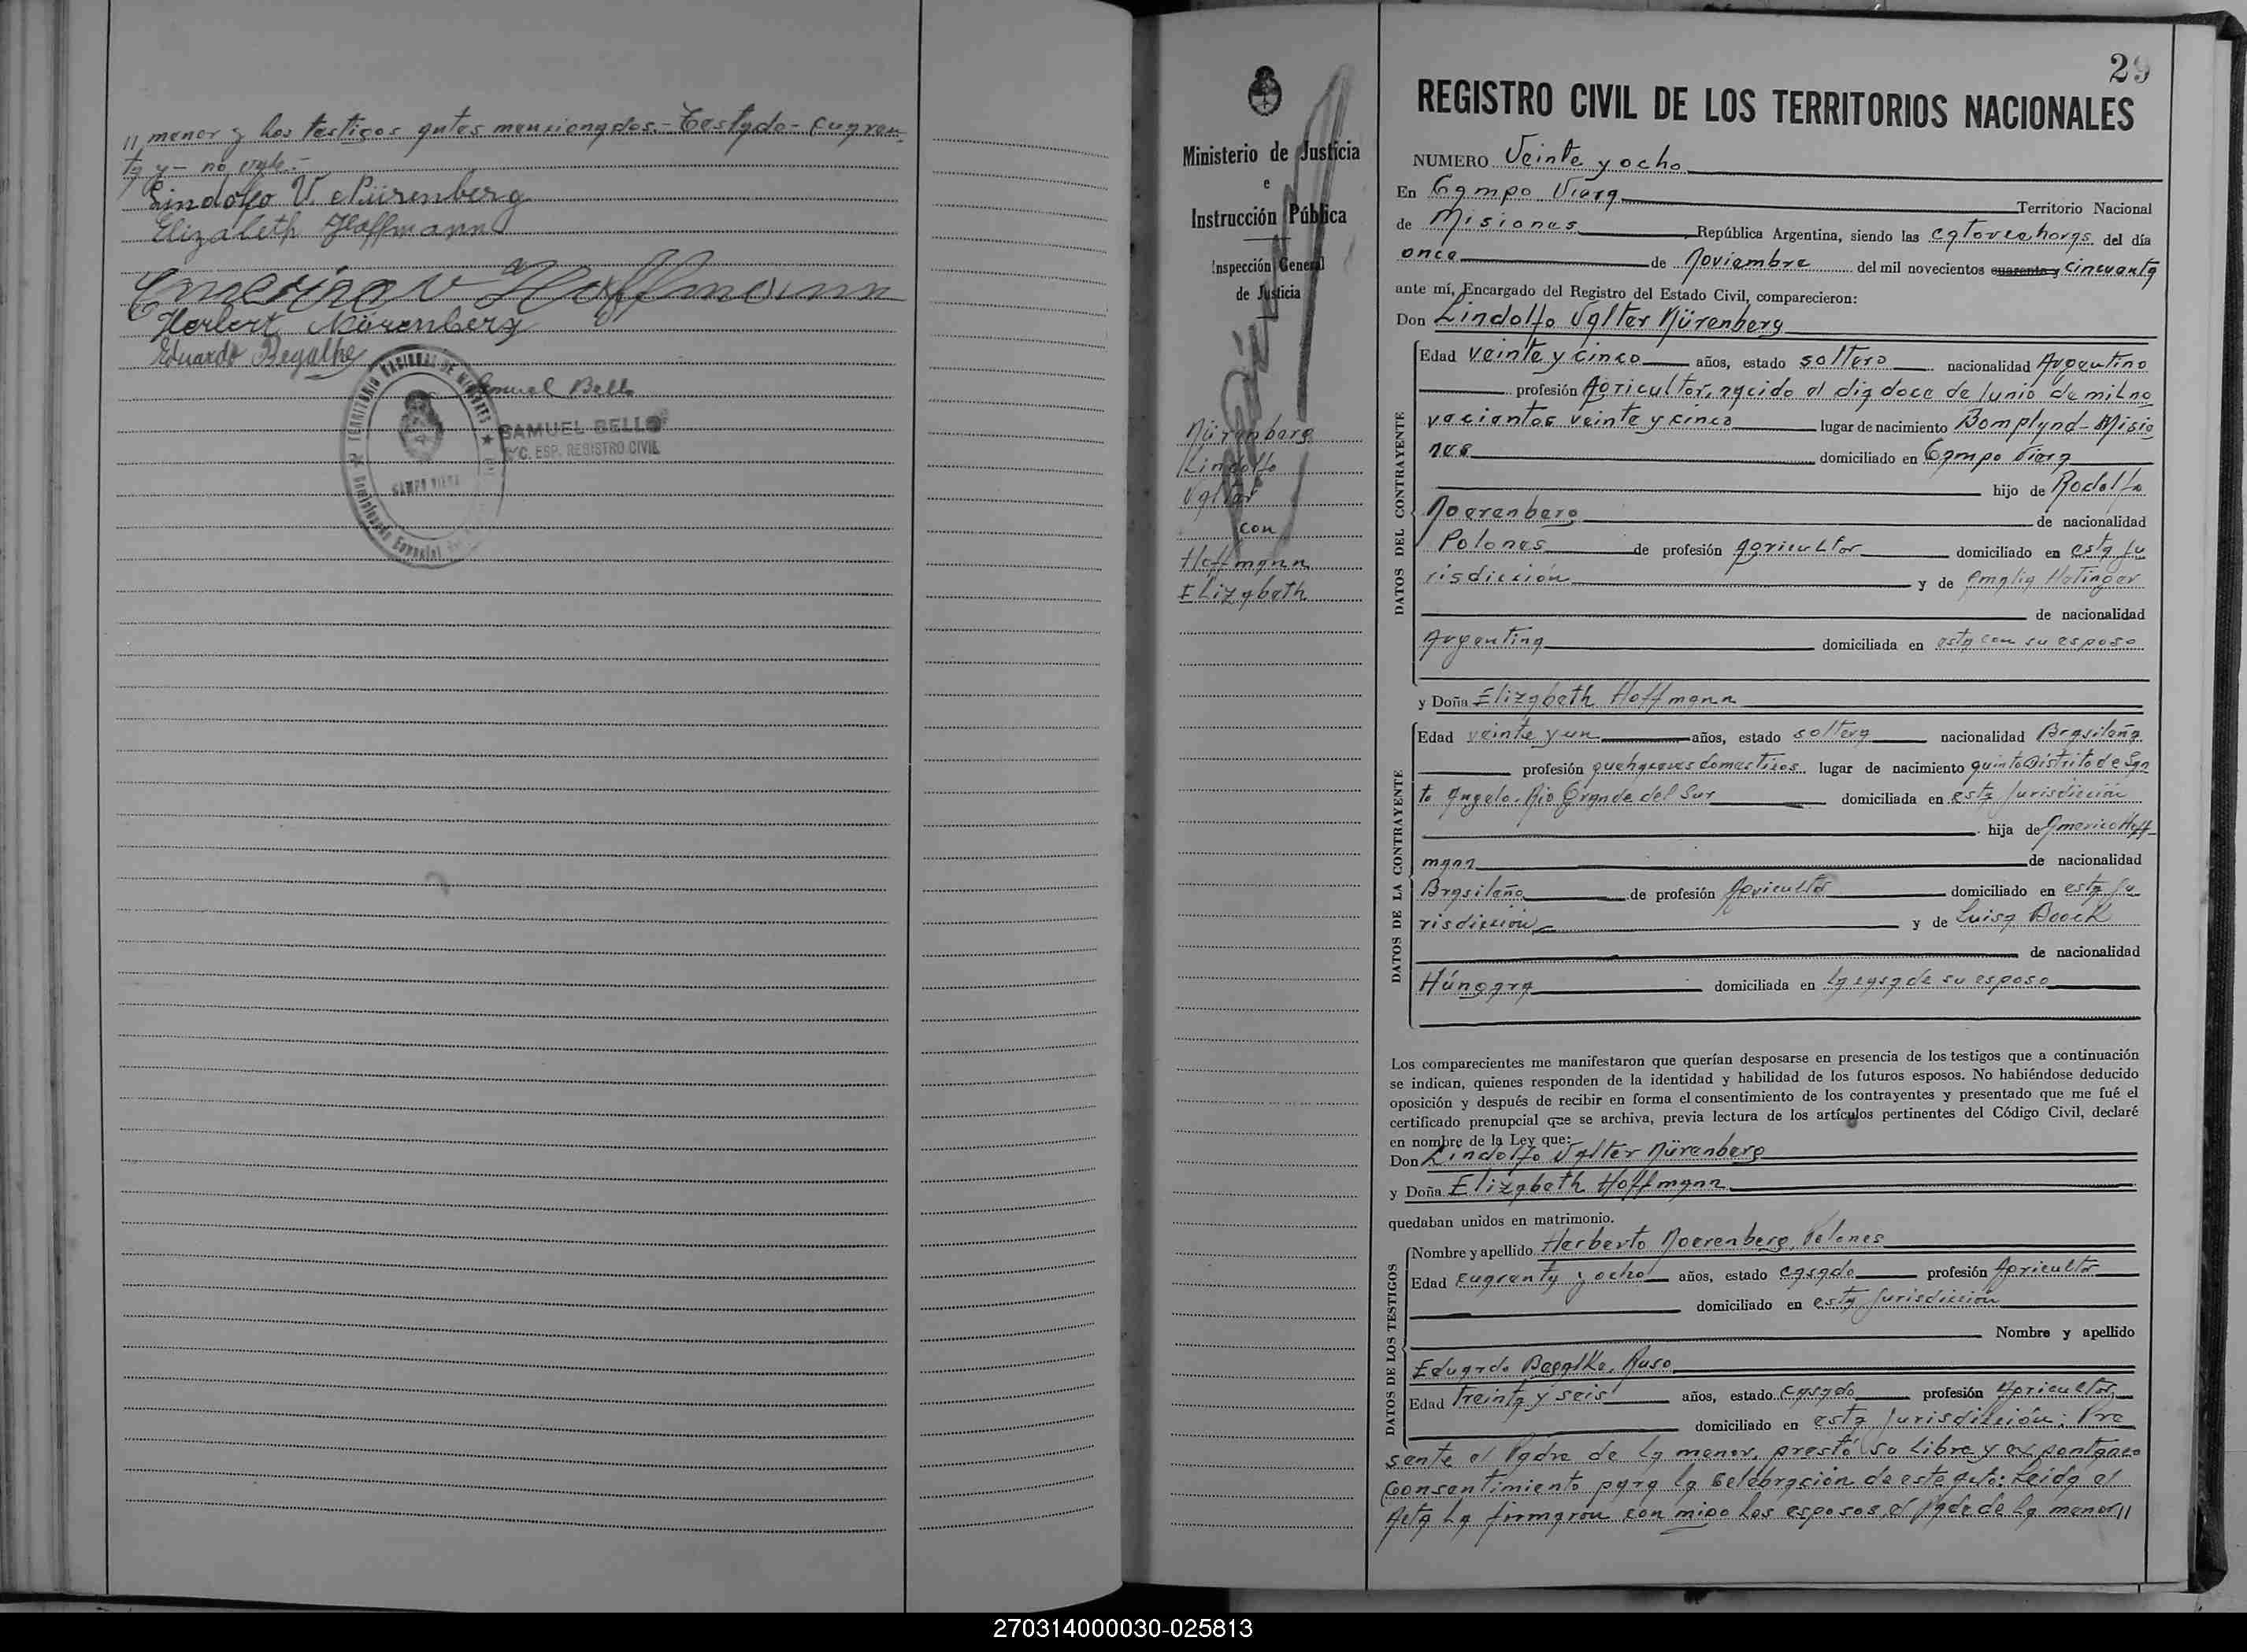 " menor y los testigos antes mencionados.- Testado- cuaren-
ta y- no vale.-
Lindolfo V. Nürenberg
Elizabeth Hoffmann
Hoffmann
Herbert Nürenberg
Eduardo Begalke
Samuel Bello
SAMUEL BELLO
ESP. REGISTRO CIVIL
TERRITORIO NACIONAL DE MISIONES
CAMPO VIERA
29
Ministerio de Justicia
e
Instrucción Pública
Inspección General
de Justicia
Nürenberg
Lindolfo
Valter
con
Hoffmann
Elizabeth
REGISTRO CIVIL DE LOS TERRITORIOS NACIONALES
NUMERO Veinte y ocho
En Campo Viera Territorio Nacional
de Misiones República Argentina, siendo las catorce horas del día
once de Noviembre del mil novecientos cuarenta y cincuenta
ante mí, Encargado del Registro del Estado Civil, comparecieron:
Don Lindolfo Valter Nürenberg
DATOS DEL CONTRAYENTE
Edad veinte y cinco años, estado soltero nacionalidad Argentino
profesión Agricultor, nacido el dia doce de Junio de mil no
vecientos veinte y cinco lugar de nacimiento Bompland- Misio
nes domiciliado en Campo Viera
hijo de Rodolfo
Noerenberg de nacionalidad
Polones de profesión agricultor domiciliado en esta Ju
risdicción y de Amalia Hetinger
de nacionalidad
Argentina domiciliada en esta con su esposo
y Doña Elizabeth Hoffmann
DATOS DE LA CONTRAYENTE
Edad veinte y un años, estado soltera nacionalidad Brasileña
profesión quehaceres domesticos lugar de nacimiento quinto Distrito de San
to Angelo. Rio Grande del Sur domiciliada en esta Jurisdicción
hija de Americo Hoff-
mann de nacionalidad
Brasileño de profesión Agricultor domiciliado en esta Ju
risdicción y de Luisa Boock
de nacionalidad
Húngara domiciliada en la casa de su esposo
Los comparecientes me manifestaron que querían desposarse en presencia de los testigos que a continuación
se indican, quienes responden de la identidad y habilidad de los futuros esposos. No habiéndose deducido
oposición y después de recibir en forma el consentimiento de los contrayentes y presentado que me fué el
certificado prenupcial que se archiva, previa lectura de los artículos pertinentes del Código Civil, declaré
en nombre de la Ley que:
Don Lindolfo Valter Nürenberg
y Doña Elizabeth Hoffmann
quedaban unidos en matrimonio.
DATOS DE LOS TESTIGOS
Nombre y apellido Herberto Noerenberg, Polones
Edad cuarenta y ocho años, estado casado profesión Agricultor
domiciliado en esta Jurisdicción
Nombre y apellido
Eduardo Begalke, Ruso
Edad treinta y seis años, estado casado profesión Agricultor
domiciliado en esta Jurisdicción: Pre
sente el Padre de la menor, prestó su libre y expontaneo
consentimiento para la celebración de este acto: Leida el
Acta la firmaron con migo los esposos, el padre de la menor"
270314000030-025813